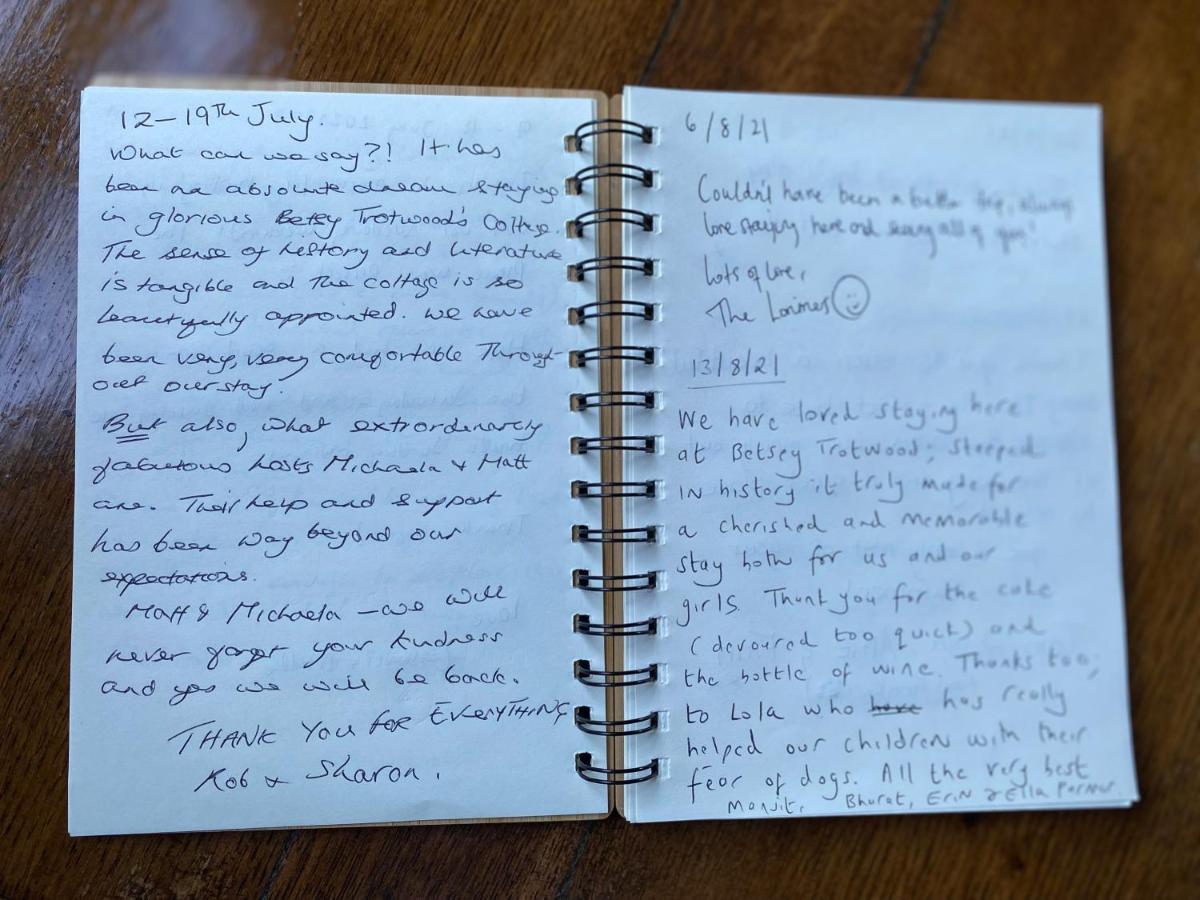 12-19Th July.
What can we say?! It has
been an absolute dream staying
in glorious Betsy Trotwood's Cottage.
The sense of history and literature
is tangible and the cottage is so
beautifully appointed. We have
been very, very comfortable Through-
out our stay.
But also, what extrordinarily
fabulous hosts Michaela & Matt
are. Their help and support
has been way beyond our
expectations.
Matt & Michaela - we will
never forget your kindness
and yes we will be back.
THANK You for EVERYTHING
Rob & Sharon.
6/8/21
Couldn't have been a better trip, always
love staying here and seeing all of you!
Lots of love,
The Lorimes
13/8/21
We have loved staying here
at Betsey Trotwood; steeped
in history it truly made for
a cherished and memorable
stay both for us and our
girls. Thank you for the cake
(devoured too quick) and
the bottle of wine. Thanks too,
to Lola who have has really
helped our children with their
fear of dogs. All the very best
Bharat, Erin & Ella Parmar.